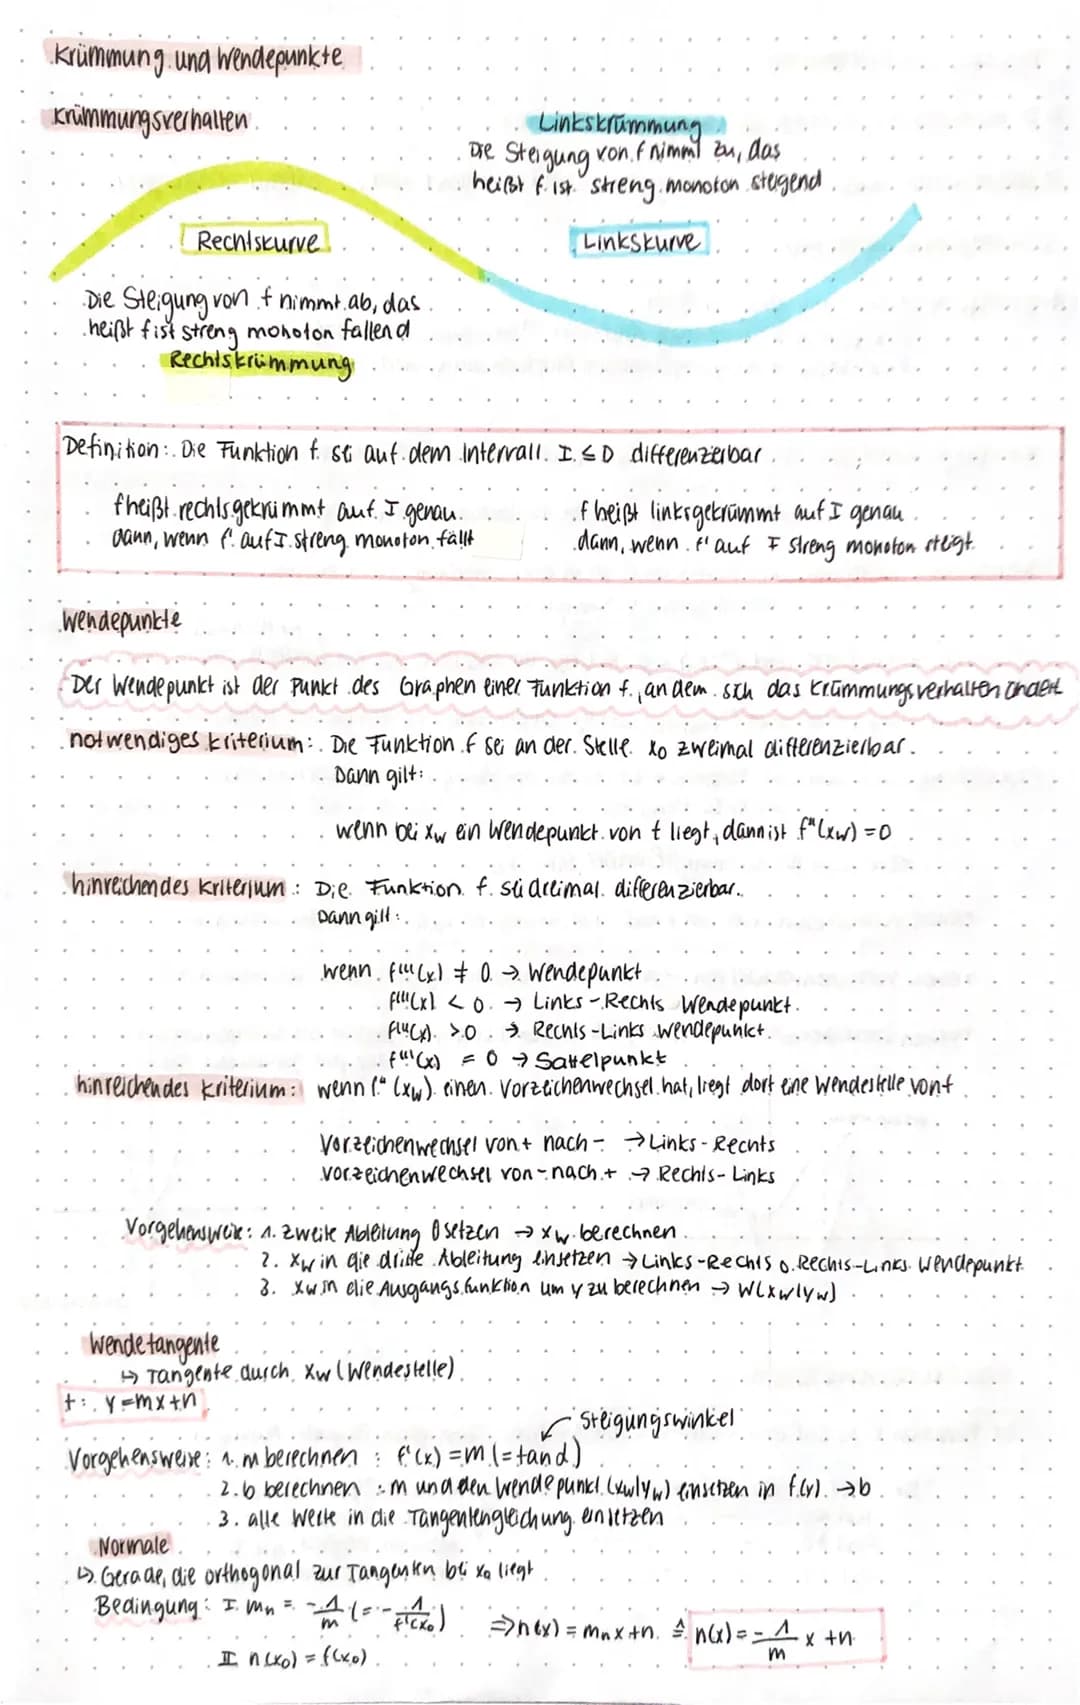 Krümmung und Wendepunkte
Krümmungsverhalten
Linkskrümmung
Die Steigung von f nimmt zu, das
heißt f ist streng monoton steigend
Rechtskurve
Linkskurve
Die Steigung von f nimmt ab, das
heißt f ist streng monoton fallend
Rechtskrümmung
Definition: Die Funktion f sei auf dem Intervall I ≤ D differenzierbar
f heißt rechtsgekrümmt auf I genau
dann, wenn f' auf I streng monoton fällt
f heißt linksgekrümmt auf I genau
dann, wenn f' auf I streng monoton steigt.
Wendepunkte
Der Wendepunkt ist der Punkt des Graphen einer Funktion f, an dem sich das Krümmungsverhalten ändert
notwendiges Kriterium: Die Funktion f sei an der Stelle x₀ zweimal differenzierbar.
Dann gilt:
wenn bei xw ein Wendepunkt von f liegt, dann ist f"(xw) = 0
hinreichendes Kriterium: Die Funktion f sei dreimal differenzierbar.
Dann gilt:
wenn f'''(x) ≠ 0 → Wendepunkt
f'''(x) < 0 → Links-Rechts Wendepunkt
f'''(x) > 0 → Rechts-Links Wendepunkt
f'''(x) = 0 → Sattelpunkt
hinreichendes Kriterium: wenn f"(xw) einen Vorzeichenwechsel hat, liegt dort eine Wendestelle von f
Vorzeichenwechsel von + nach - → Links-Rechts
Vorzeichenwechsel von - nach + → Rechts-Links
Vorgehensweise: 1. zweite Ableitung 0 setzen → xw berechnen
2. xw in die dritte Ableitung einsetzen → Links-Rechts o. Rechts-Links Wendepunkt
3. xw in die Ausgangsfunktion um y zu berechnen → W(xw|yw)
Wendetangente
↳ Tangente durch xw (Wendestelle)
t: y=mx+n
Steigungswinkel
Vorgehensweise: 1. m berechnen : f'(x) = m (= tan α)
2. b berechnen : m und den Wendepunkt (xw|yw) einsetzen in f(x) → b
3. alle Werte in die Tangentengleichung einsetzen
Normale
↳ Gerade, die orthogonal zur Tangenten bei x₀ liegt
Bedingung: I mn = -1/m (= -1/f'(x₀)) ⇒ n(x) = mnx + n ≙ n(x) = -1/m x + n
II n(x₀) = f(x₀)